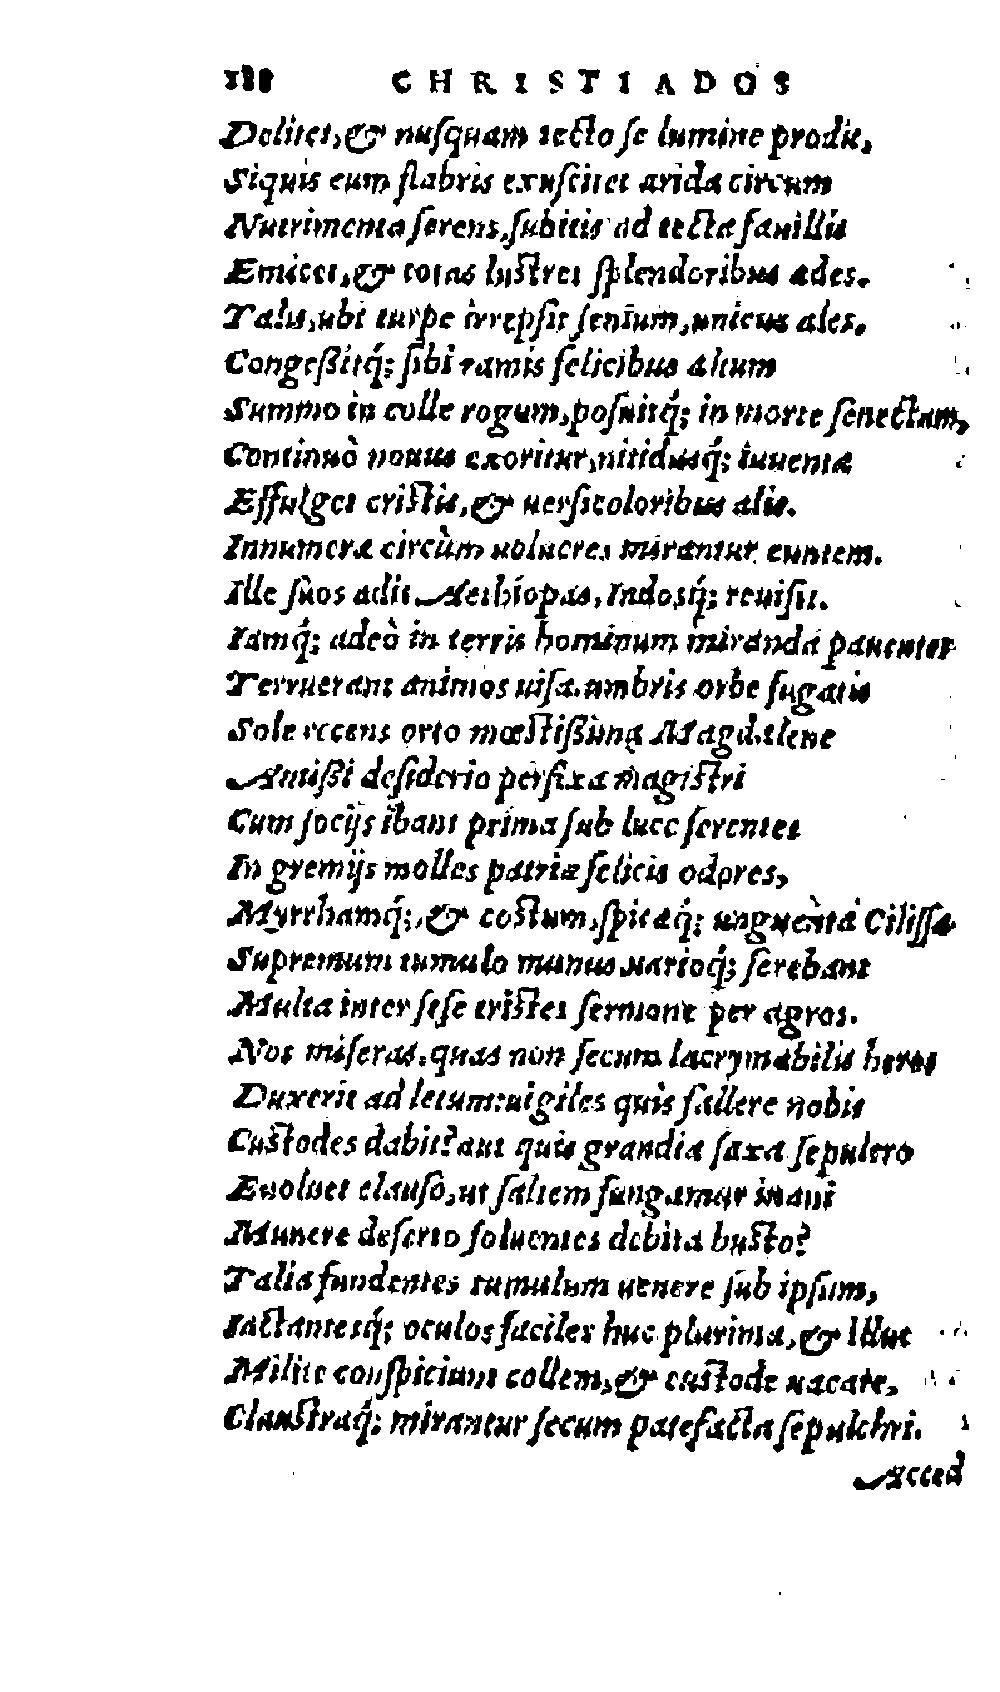 188 CHRISTIADOS
Delitet, & nusquam tecto se lumine prodit,
Siquis eum flabris exuscitet arida circum
Nutrimenta serens, subitis ad tecta fauillis
Emicet, & totas lustret splendoribus ædes.
Talis, ubi turpe irrepsit senium, unicus ales.
Congeßitq́; sibi ramis felicibus altum
Summo in colle rogum, posuitq́; in morte senectam,
Continuò nouus exoritur, nitidusq́; iuuenta
Effulget cristis, & uersicoloribus alis.
Innumeræ circùm uolucres mirantur euntem.
Ille suos adit Aethiopas, Indosq́; reuisit.
Iamq́; adeò in terris hominum miranda pauentes
Terruerant animos uisa. umbris orbe fugatis
Sole recens orto mœstißima Magdalene
Amißi desiderio perfixa magistri
Cum socijs ibant prima sub luce ferentes
In gremijs molles patriæ felicis odores,
Myrrhamq́;, & costum, spicaq́; unguenta Cilissa
Supremum tumulo munus uarioq́; serebant
Multa inter sese tristes sermone per agros.
Nos miseras. quas non secum lacrymabilis heros
Duxerit ad letum: uigiles quis fallere nobis
Custodes dabit? aut quis grandia saxa sepulcro
Euoluet clauso, ut saltem fungamur inani
Munere deserto soluentes debita busto?
Talia fundentes tumulum uenere sub ipsum,
Iactantesq́; oculos faciles huc plurima, & illuc
Milite conspiciunt collem, & custode uacare,
Claustraq́; mirantur secum patefacta sepulchri.
Acced